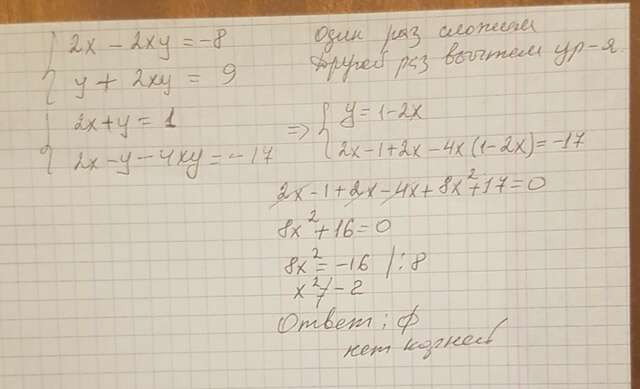 2x - 2xy = -8
y + 2xy = 9
Один раз сложим
другой раз вычтем ур-я.
2x + y = 1
2x - y - 4xy = -17
=> y = 1 - 2x
2x - 1 + 2x - 4x(1 - 2x) = -17
2x - 1 + 2x - 4x + 8x² + 17 = 0
8x² + 16 = 0
8x² = -16 /:8
x² ≠ -2
Ответ: ф
нет корней